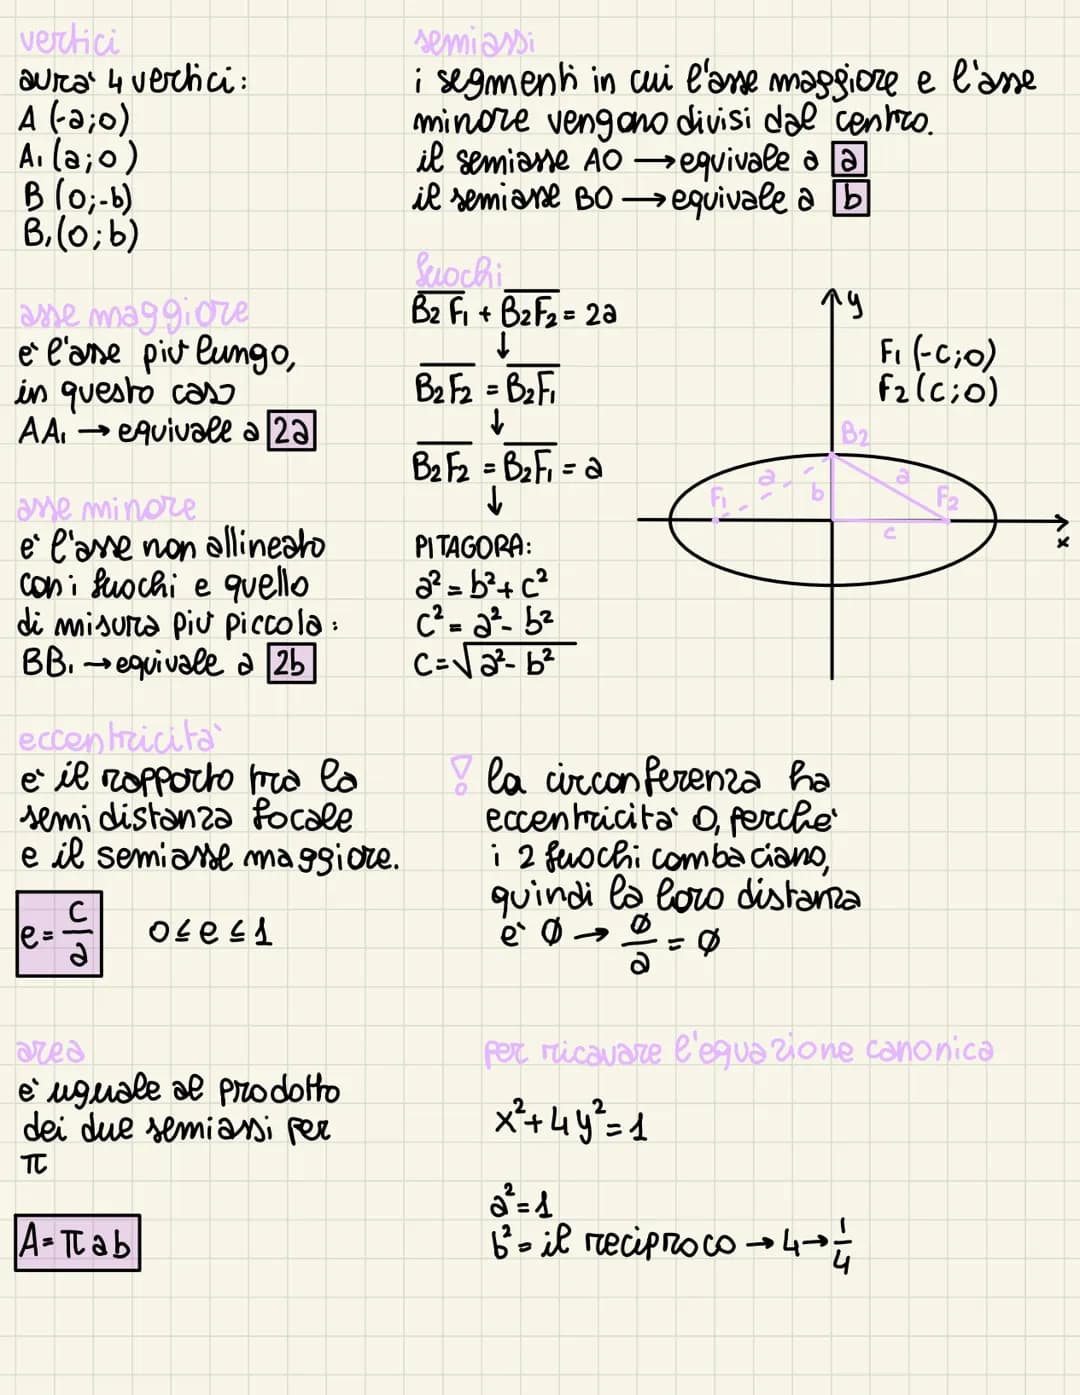 vertici
avra' 4 vertici:
A (-a;0)
A₁ (a;0)
B (0;-b)
B₁ (0;b)
asse maggiore
e' l'asse più lungo,
in questo caso
AA₁ → equivale a 2a
asse minore
e' l'asse non allineato
con i fuochi e quello
di misura più piccola:
BB₁ → equivale a 2b
semiassi
i segmenti in cui l'asse maggiore e l'asse
minore vengano divisi dal centro.
il semiasse AO → equivale a a
il semiasse BO → equivale a b
fuochi
B₂F₁ + B₂F₂ = 2a
↓
B₂F₂ = B₂F₁
↓
B₂F₂ = B₂F₁ = a
↓
PITAGORA:
a² = b² + c²
c² = a² - b²
c = √a² - b²
y
F₁ (-c;0)
F₂ (c;0)
B₂
a
b
a
F₁
F₂
c
x
eccentricita'
e' il rapporto tra la
semidistanza focale
e il semiasse maggiore.
e = c/a
0 ≤ e ≤ 1
! la circonferenza ha
eccentricita' 0, perche'
i 2 fuochi combaciano,
quindi la loro distanza
e' ∅ → ∅/a = ∅
area
e' uguale al prodotto
dei due semiassi per
π
A = π a b
per ricavare l'equazione canonica
x² + 4y² = 1
a² = 1
b² = il reciproco → 4 → 1/4